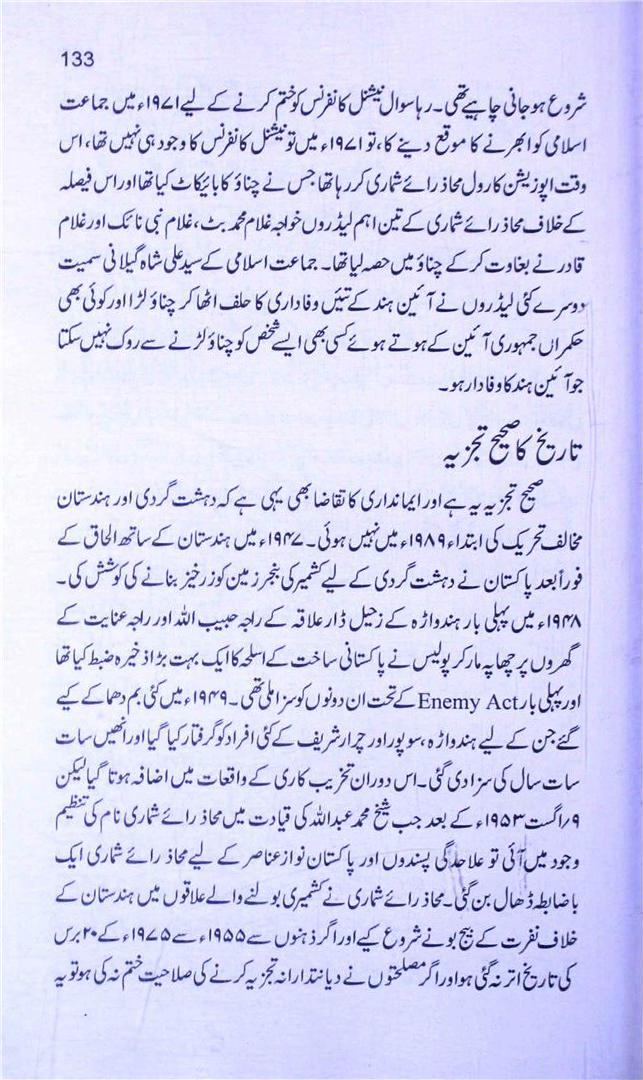 133
شروع ہوجانی چاہیے تھی۔ رہا سوال نیشنل کانفرنس کو ختم کرنے کے لیے ۱۹۷۱ء میں جماعت
اسلامی کو ابھرنے کا موقع دینے کا، تو ۱۹۷۱ء میں تو نیشنل کانفرنس کا وجود ہی نہیں تھا، اس
وقت اپوزیشن کا رول محاذ رائے شماری کر رہا تھا جس نے چناؤ کا بائیکاٹ کیا تھا اور اس فیصلہ
کے خلاف محاذ رائے شماری کے تین اہم لیڈروں خواجہ غلام محمد بٹ، غلام نبی نائک اور غلام
قادر نے بغاوت کرکے چناؤ میں حصہ لیا تھا۔ جماعت اسلامی کے سید علی شاہ گیلانی سمیت
دوسرے کئی لیڈروں نے آئین ہند کے تئیں وفاداری کا حلف اٹھا کر چناؤ لڑا اور کوئی بھی
حکمراں جمہوری آئین کے ہوتے ہوئے کسی بھی ایسے شخص کو چناؤ لڑنے سے روک نہیں سکتا
جو آئین ہند کا وفادار ہو۔
تاریخ کا صحیح تجزیہ
صحیح تجزیہ یہ ہے اور ایمانداری کا تقاضا بھی یہی ہے کہ دہشت گردی اور ہندستان
مخالف تحریک کی ابتداء ۱۹۸۹ء میں نہیں ہوئی۔ ۱۹۴۷ء میں ہندستان کے ساتھ الحاق کے
فوراً بعد پاکستان نے دہشت گردی کے لیے کشمیر کی بنجر زمین کو زرخیز بنانے کی کوشش کی۔
۱۹۴۸ء میں پہلی بار ہندواڑہ کے زحیل ڈار علاقہ کے راجہ حبیب اللہ اور راجہ عنایت کے
گھروں پر چھاپہ مار کر پولیس نے پاکستانی ساخت کے اسلحہ کا ایک بہت بڑا ذخیرہ ضبط کیا تھا
اور پہلی بار Enemy Act کے تحت ان دونوں کو سزا ملی تھی۔ ۱۹۴۹ء میں کئی بم دھماکے کیے
گئے جن کے لیے ہندواڑہ، سوپور اور چرار شریف کے کئی افراد کو گرفتار کیا گیا اور انھیں سات
سات سال کی سزا دی گئی۔ اس دوران تخریب کاری کے واقعات میں اضافہ ہوتا گیا لیکن
۹/اگست ۱۹۵۳ء کے بعد جب شیخ محمد عبداللہ کی قیادت میں محاذ رائے شماری نام کی تنظیم
وجود میں آئی تو علاحدگی پسندوں اور پاکستان نواز عناصر کے لیے محاذ رائے شماری ایک
باضابطہ ڈھال بن گئی۔ محاذ رائے شماری نے کشمیری بولنے والے علاقوں میں ہندستان کے
خلاف نفرت کے بیج بونے شروع کیے اور اگر ذہنوں سے ۱۹۵۵ء سے ۱۹۷۵ء کے ۲۰ برس
کی تاریخ اتر نہ گئی ہو اور اگر مصلحتوں نے دیانتدارانہ تجزیہ کرنے کی صلاحیت ختم نہ کی ہو تو یہ